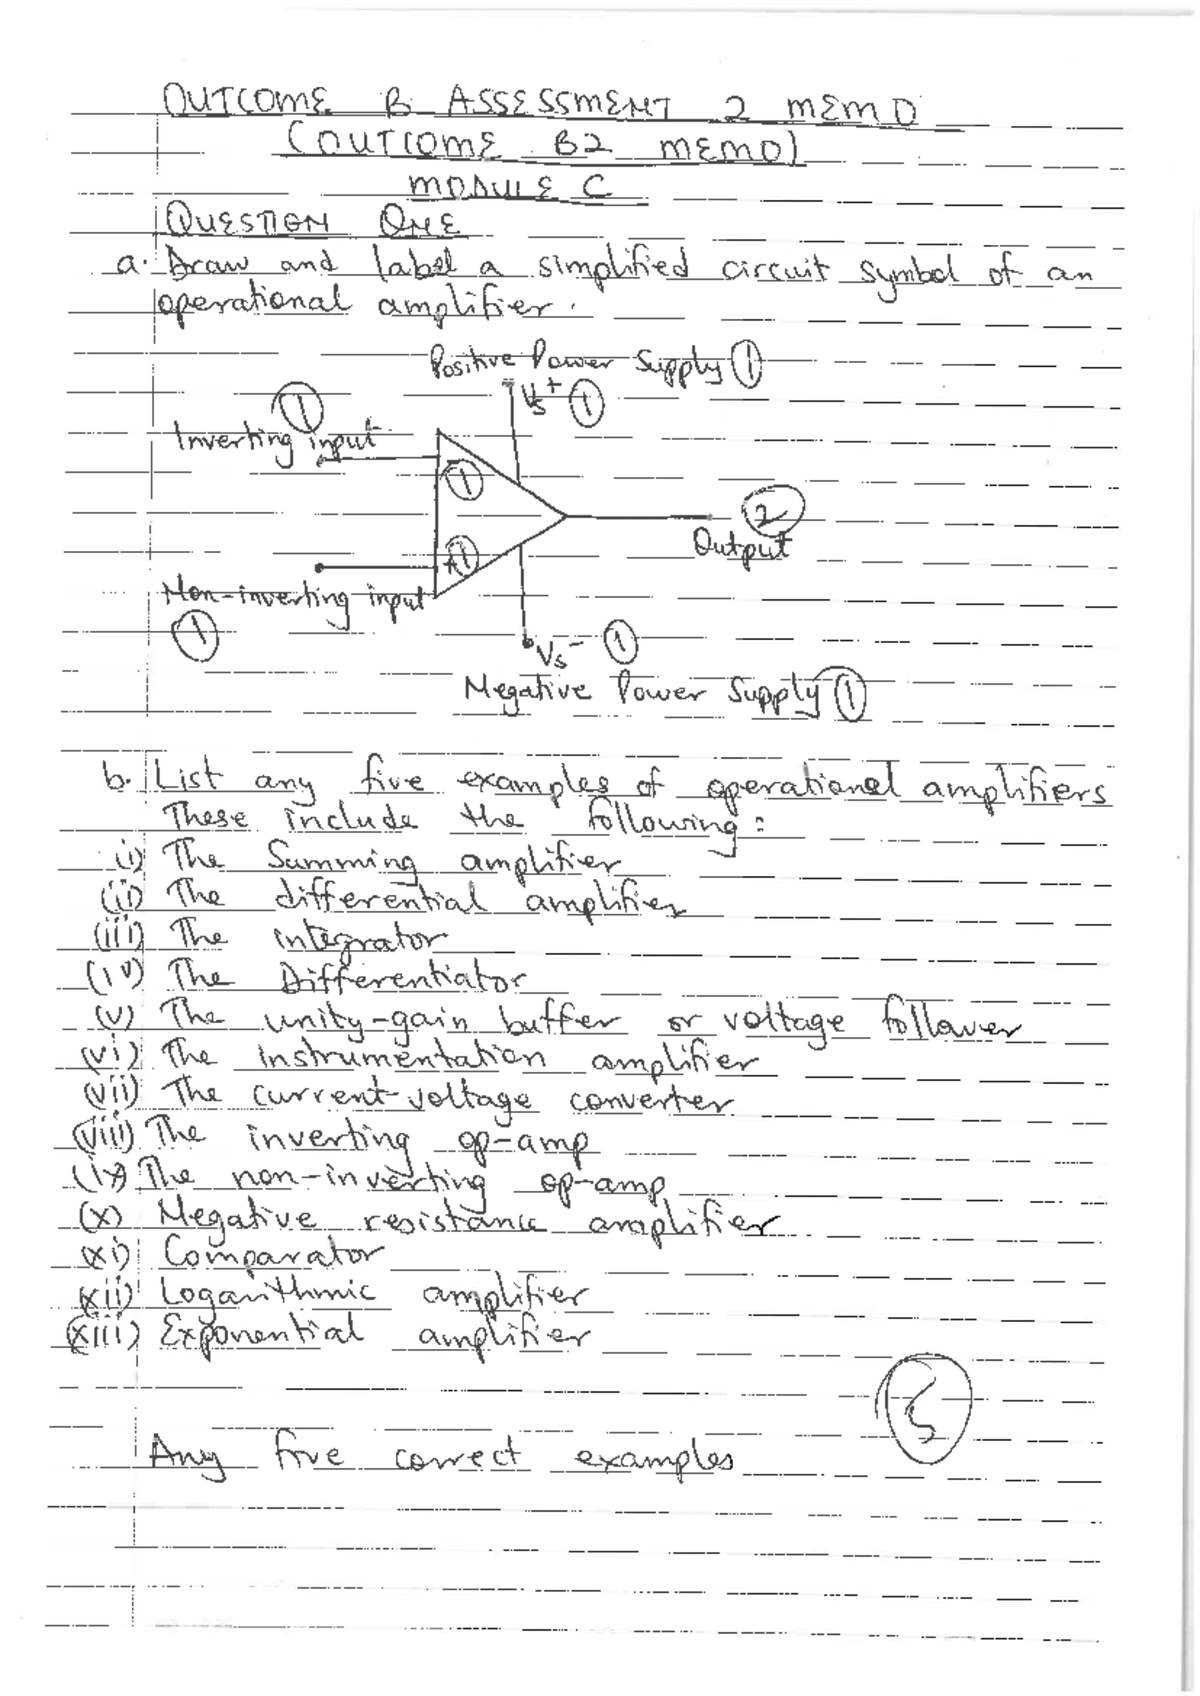 OUTCOME B ASSESSMENT 2 MEMO
(OUTCOME B2 MEMO)
MODULE C
QUESTION ONE
a. Draw and label a simplified circuit symbol of an
operational amplifier.
Positive Power Supply 1
Vs+ 1
1
Inverting input
- 1
2
Output
+ 1
Non-inverting input
1
Vs- 1
Negative Power Supply 1
b. List any five examples of operational amplifiers
These include the following:
(i) The Summing amplifier
(ii) The differential amplifier
(iii) The integrator
(iv) The Differentiator
(v) The unity-gain buffer or voltage follower
(vi) The instrumentation amplifier
(vii) The current-voltage converter
(viii) The inverting op-amp
(ix) The non-inverting op-amp
(x) Negative resistance amplifier
(xi) Comparator
(xii) Logarithmic amplifier
(xiii) Exponential amplifier
5
Any five correct examples